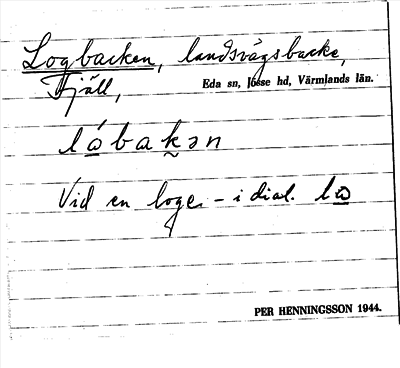 Logbacken, landsvägsbacke,
Fjäll, Eda sn, Jösse hd, Värmlands län.
ló̲bak̰ən
Vid en loge. – i dial. lo̲
PER HENNINGSSON 1944.